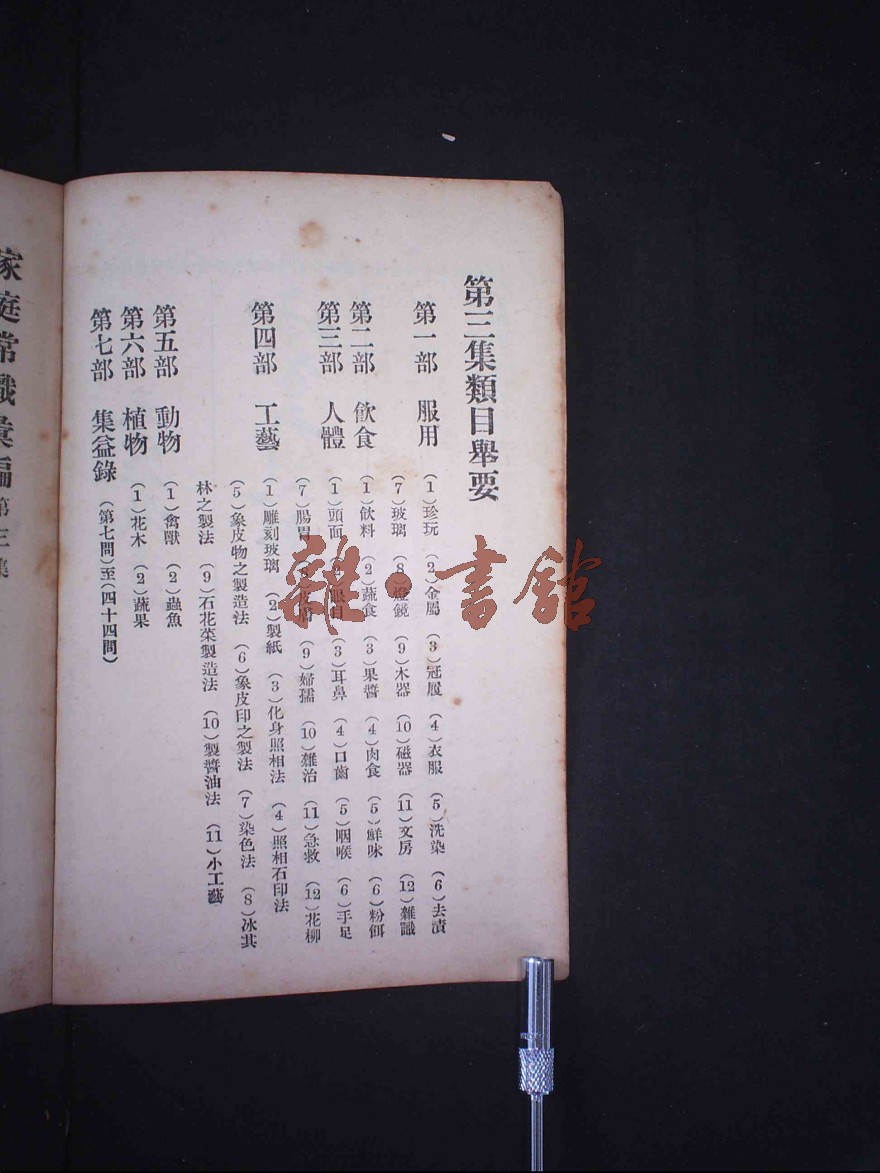 第三集類目舉要
第一部 服用 (1)珍玩 (2)金屬 (3)冠履 (4)衣服 (5)洗染 (6)去漬
(7)玻璃 (8)燈鏡 (9)木器 (10)磁器 (11)文房 (12)雜識
第二部 飲食 (1)飲料 (2)蔬食 (3)果醬 (4)肉食 (5)鮮味 (6)粉餌
第三部 人體 (1)頭面 (2)眼目 (3)耳鼻 (4)口齒 (5)咽喉 (6)手足
(7)腸胃 (9)婦孺 (10)雜治 (11)急救 (12)花柳
第四部 工藝 (1)雕刻玻璃 (2)製紙 (3)化身照相法 (4)照相石印法
(5)象皮物之製造法 (6)象皮印之製法 (7)染色法 (8)冰其
林之製法 (9)石花菜製造法 (10)製醬油法 (11)小工藝
第五部 動物 (1)禽獸 (2)蟲魚
第六部 植物 (1)花木 (2)蔬果
第七部 集益錄 (第七問)至(四十四問)
家庭常識彙編 第三集
雜·書館